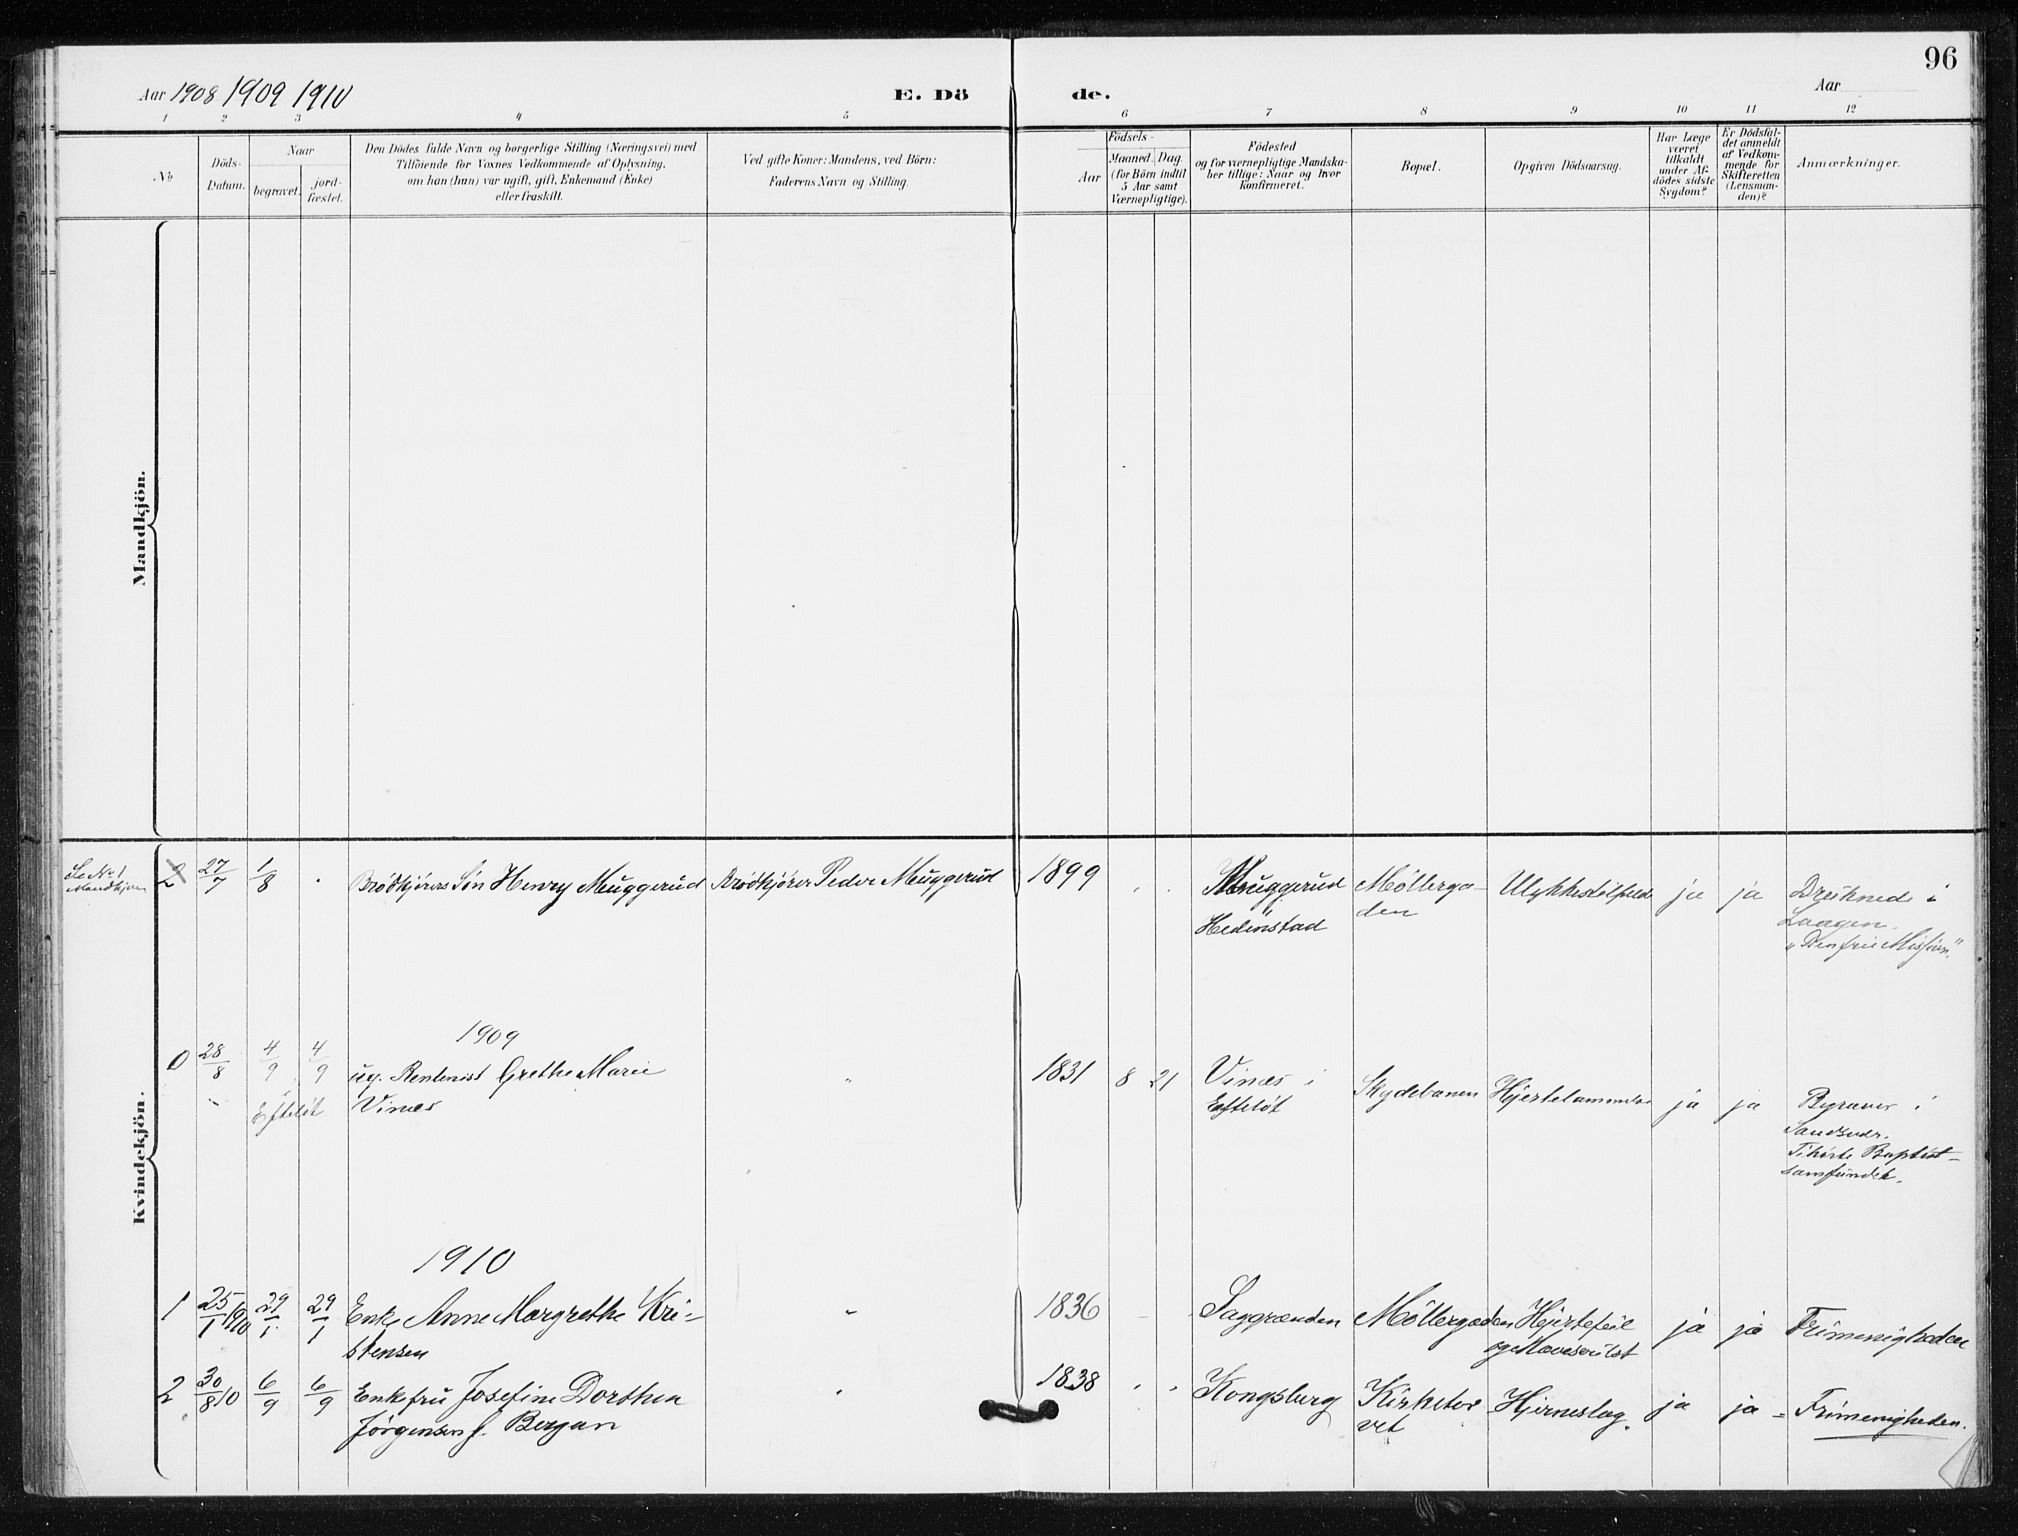 96
Aar 1908 1909 1910
E. Dö
de.
Aar
1 2 3 4 5 6 7 8 9 10 11 12
No
Döds-
Datum.
Naar
begravet.
jord-
fæstet.
Den Dödes fulde Navn og borgerlige Stilling (Næringsvei) med
Tilföiende for Voxnes Vedkommende af Oplysning,
om han (hun) var ugift, gift, Enkemand (Enke)
eller fraskilt.
Ved gifte Koner: Mandens, ved Börn:
Faderens Navn og Stilling.
Födsels-
Aar
Maaned. Dag.
(for Börn indtil
5 Aar samt
Værnepligtige).
Födested
og for værnepligtige Mandska-
ber tillige: Naar og hvor
konfirmeret.
Bopæl.
Opgiven Dödsaarsag.
Har Læge
været
tilkaldt
under Af-
dödes sidste
Sygdom?
Er Dödsfal-
det anmeldt
af Vedkom-
mende for
Skifteretten
(Lensman-
den)?
Anmærkninger.
Mandkjön.
Kvindekjön.
Se No 1
Mandkjøn
2 27/7 1/8 . Brødkjørers Søn Henry Muggerud Brødkjører Peder Muggerud 1899 . . Muggerud Møllerga- Ulykkestilfælde ja ja Druknede i
Hedenstad den Laagen.
"Den frie Mission."
1909
0 28/8 4/9 4/9 ug. Rentenist Grethe Marie " 1831 8 21 Vinæs i Skydebanen Hjertelammelse ja ja i
Efteløt Vinæs Efteløt
Sandsvær.
Tilhørte Baptist-
samfundet.
1910
1 25/1 1910 29/1 29/1 Enke Anne Margrethe Kri- " 1836 Saggrænden Møllergaden Hjertefeil ja ja Frimenigheden
stensen
2 30/8 10 6/9 6/9 Enkefru Josefine Dorthea " 1838 . . Kongsberg Kirketor Hjerneslag. ja ja - Frimenigheden.
Jørgensen f. Bergan vet